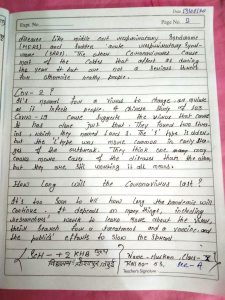 Expt. No.
Page No. 2
diseases like middle east respiratory syndrome
(MERS) and sudden acute respiratory synd-
rome (SARS). The other Coronaviruses cause
most of the Coldes that affect us during
the year but are not a serious threat
for otherwise healthy people.
Cov-2?
It's normal for a virus to change, or mutate
as it infects people. A chinese study of 103
Covid-19 cases suggests the virus that causes
it has done just that. They found two strains
which they named L and S. The S type is older,
but the L type was more common in early stag-
es of the outbreak. They think one may
cause more cases of the disease than the other
but they are still working it all means.
How long will the Coronavirus last?
It's too soon to tell how long the pandemic will
continue. It depends on many things, including
researchers work to learn more about the virus
their search for a treatment and a vaccine, and
the public's efforts to slow the spread
Name -
Class - X
Roll no - 03,
Teachers Signature